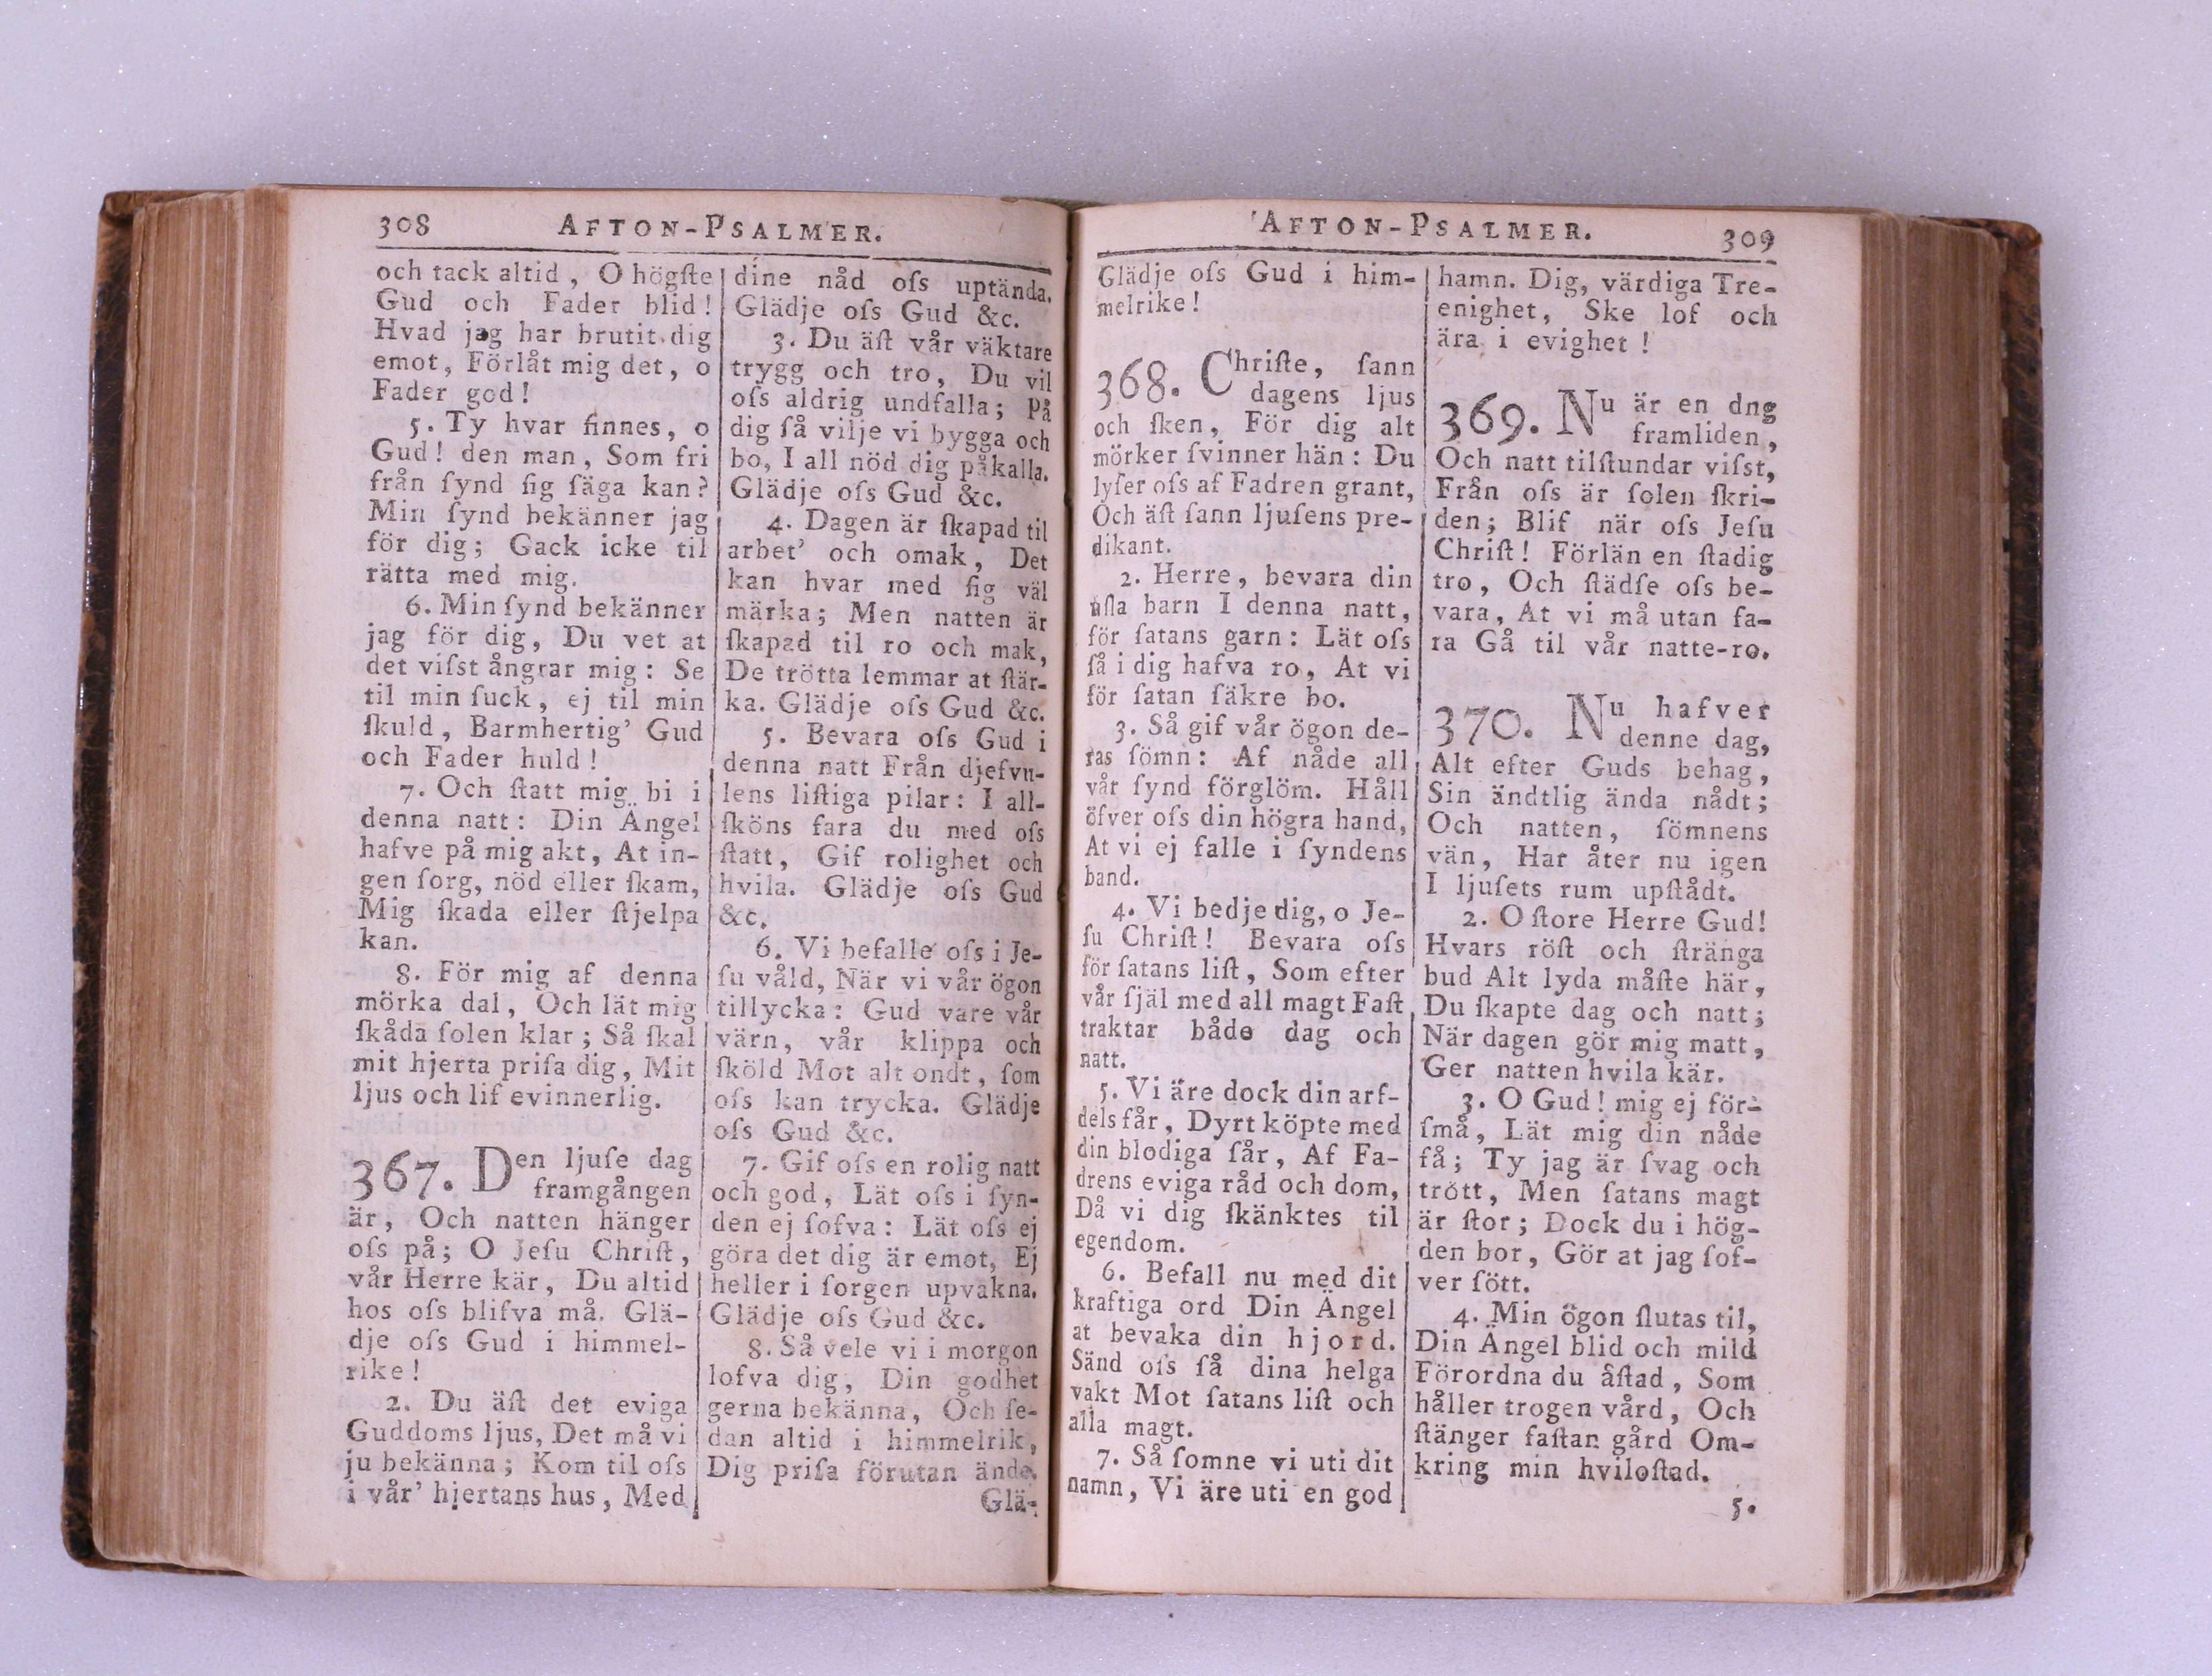 308 AFTON-PSALMER.
och tack altid, O högſte
Gud och Fader blid!
Hvad jag har brutit dig
emot, Förlåt mig det, o
Fader god!
5. Ty hvar finnes, o
Gud! den man, Som fri
från ſynd ſig ſäga kan?
Min ſynd bekänner jag
för dig; Gack icke til
rätta med mig.
6. Min ſynd bekänner
jag för dig, Du vet at
det viſst ångrar mig: Se
til min ſuck, ej til min
ſkuld, Barmhertig' Gud
och Fader huld!
7. Och ſtatt mig bi i
denna natt: Din Ängel
hafve på mig akt, At in-
gen ſorg, nöd eller ſkam,
Mig ſkada eller ſtjelpa
kan.
8. För mig af denna
mörka dal, Och lät mig
ſkåda ſolen klar; Så ſkal
mit hjerta priſa dig, Mit
ljus och lif evinnerlig.
367. Den ljuſe dag
framgången
är, Och natten hänger
oſs på; O Jeſu Chriſt,
vår Herre kär, Du altid
hos oſs blifva må. Glä-
dje oſs Gud i himmel-
rike!
2. Du äſt det eviga
Guddoms ljus, Det må vi
ju bekänna; Kom til oſs
i vår' hjertans hus, Med
dine nåd oſs uptända.
Glädje oſs Gud &c.
3. Du äſt vår väktare
trygg och tro, Du vil
oſs aldrig undfalla; På
dig ſå vilje vi bygga och
bo, I all nöd dig påkalla.
Glädje oſs Gud &c.
4. Dagen är ſkapad til
arbet' och omak, Det
kan hvar med ſig väl
märka; Men natten är
ſkapad til ro och mak,
De trötta lemmar at ſtär-
ka. Glädje oſs Gud &c.
5. Bevara oſs Gud i
denna natt Från djefvu-
lens liſtiga pilar: I all-
ſköns fara du med oſs
ſtatt, Gif rolighet och
hvila. Glädje oſs Gud
&c.
6. Vi befalle oſs i Je-
ſu våld, När vi vår ögon
tillycka: Gud vare vår
värn, vår klippa och
ſköld Mot alt ondt, ſom
oſs kan trycka. Glädje
oſs Gud &c.
7. Gif oſs en rolig natt
och god, Lät oſs i ſyn-
den ej ſofva: Lät oſs ej
göra det dig är emot, Ej
heller i ſorgen upvakna.
Glädje oſs Gud &c.
8. Så vele vi i morgon
lofva dig, Din godhet
gerna bekänna, Och ſe-
dan altid i himmelrik,
Dig priſa förutan ände.
Glä-
AFTON-PSALMER. 309
Glädje oſs Gud i him-
melrike!
368. Chriſte, ſann
dagens ljus
och ſken, För dig alt
mörker ſvinner hän: Du
lyſer oſs af Fadren grant,
Och äſt ſann ljuſens pre-
dikant.
2. Herre, bevara din
uſla barn I denna natt,
för ſatans garn: Lät oſs
ſå i dig hafva ro, At vi
för ſatan ſäkre bo.
3. Så gif vår ögon de-
ras ſömn: Af nåde all
vår ſynd förglöm. Håll
öfver oſs din högra hand,
At vi ej falle i ſyndens
band.
4. Vi bedje dig, o Je-
ſu Chriſt! Bevara oſs
för ſatans liſt, Som efter
vår ſjäl med all magt Faſt
traktar både dag och
natt.
5. Vi äre dock din arf-
dels får, Dyrt köpte med
din blodiga ſår, Af Fa-
drens eviga råd och dom,
Då vi dig ſkänktes til
egendom.
6. Befall nu med dit
kraftiga ord Din Ängel
at bevaka din hjord.
Sänd oſs ſå dina helga
vakt Mot ſatans liſt och
alla magt.
7. Så ſomne vi uti dit
namn, Vi äre uti en god
hamn. Dig, värdiga Tre-
enighet, Ske lof och
ära i evighet!
369. Nu är en dng
framliden,
Och natt tilſtundar viſst,
Från oſs är ſolen ſkri-
den; Blif när oſs Jeſu
Chriſt! Förlän en ſtadig
tro, Och ſtädſe oſs be-
vara, At vi må utan fa-
ra Gå til vår natte-ro.
370. Nu hafver
denne dag,
Alt efter Guds behag,
Sin ändtlig ända nådt;
Och natten, ſömnens
vän, Har åter nu igen
I ljuſets rum upſtådt.
2. O ſtore Herre Gud!
Hvars röſt och ſtränga
bud Alt lyda måſte här,
Du ſkapte dag och natt;
När dagen gör mig matt,
Ger natten hvila kär.
3. O Gud! mig ej för-
ſmå, Lät mig din nåde
få; Ty jag är ſvag och
trött, Men ſatans magt
är ſtor; Dock du i hög-
den bor, Gör at jag ſof-
ver ſött.
4. Min ögon ſlutas til,
Din Ängel blid och mild
Förordna du åſtad, Som
håller trogen vård, Och
ſtänger faſtan gård Om-
kring min hviloſtad.
5.